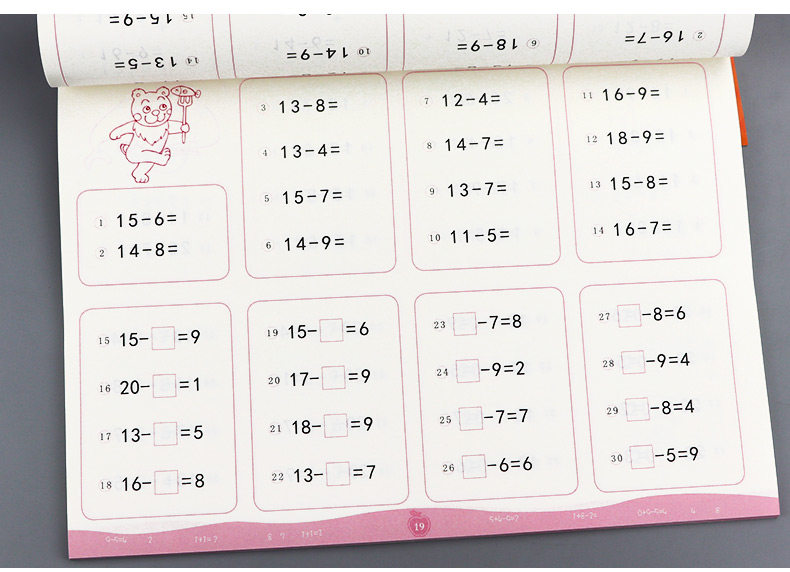 15 15-9=
14 13-5=
10 14-9=
6 18-9=
2 16-7=
1 15-6=
2 14-8=
3 13-8=
4 13-4=
5 15-7=
6 14-9=
7 12-4=
8 14-7=
9 13-7=
10 11-5=
11 16-9=
12 18-9=
13 15-8=
14 16-7=
15 15-□=9
16 20-□=1
17 13-□=5
18 16-□=8
19 15-□=6
20 17-□=9
21 18-□=9
22 13-□=7
23 □-7=8
24 □-9=2
25 □-7=7
26 □-6=6
27 □-8=6
28 □-9=4
29 □-8=4
30 □-5=9
19